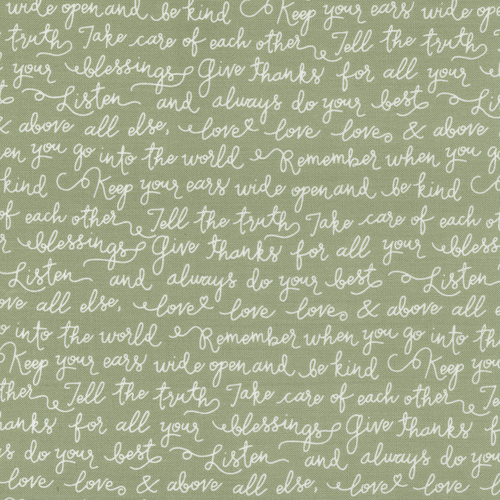 wide open and be kind Keep your ears wide op
truth Take care of each other Tell the truth
your blessings Give thanks for all your
Listen and always do your best Li
& above all else, love love love & above
en you go into the world Remember when you g
kind Keep your ears wide open and be kind
of each other Tell the truth Take care of each o
blessings Give thanks for all your bless
Listen and always do your best Listen
ove all else, love love love & above all
o into the world Remember when you go into th
Keep your ears wide open and be kind Keep yo
ther Tell the truth Take care of each other Te
hanks for all your blessings Give thanks f
s do your best Listen and always do you
love love & above all else, love love lo